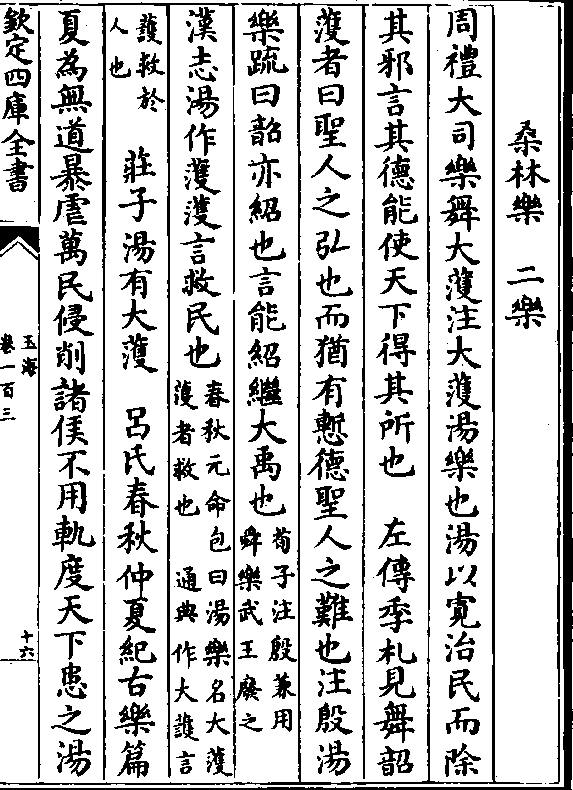 桑林樂　二樂
周禮大司樂舞大濩注大濩湯樂也湯以寬治民而除
其邪言其德能使天下得其所也　左傳季札見舞韶
濩者曰聖人之弘也而猶有慙德聖人之難也注殷湯
樂䟽曰韶亦紹也言能紹繼大禹也荀子注殷兼用舜樂武王廢之
漢志湯作濩濩言救民也春秋元命包曰湯樂名大濩濩者救也　通典作大護言
護救於人也　莊子湯有大濩　呂氏春秋仲夏紀古樂篇
夏為無道暴虐萬民侵削諸侯不用軌度天下患之湯
欽定四庫全書
玉海
卷一百三
十六